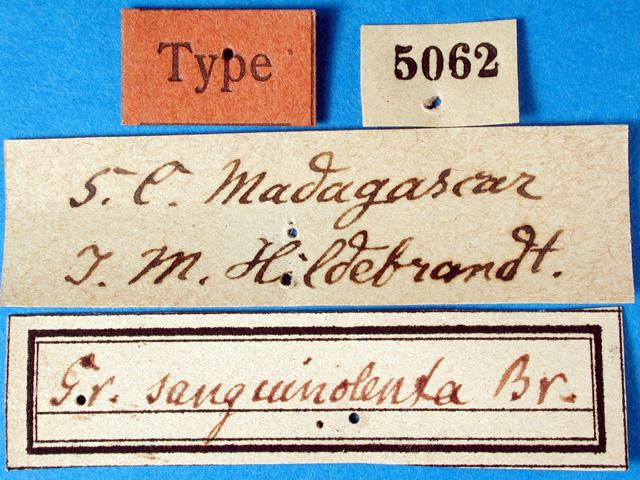 Type
5062
S. C. Madagascar
J. M. Hildebrandt.
Gr. sanguinolenta Br.